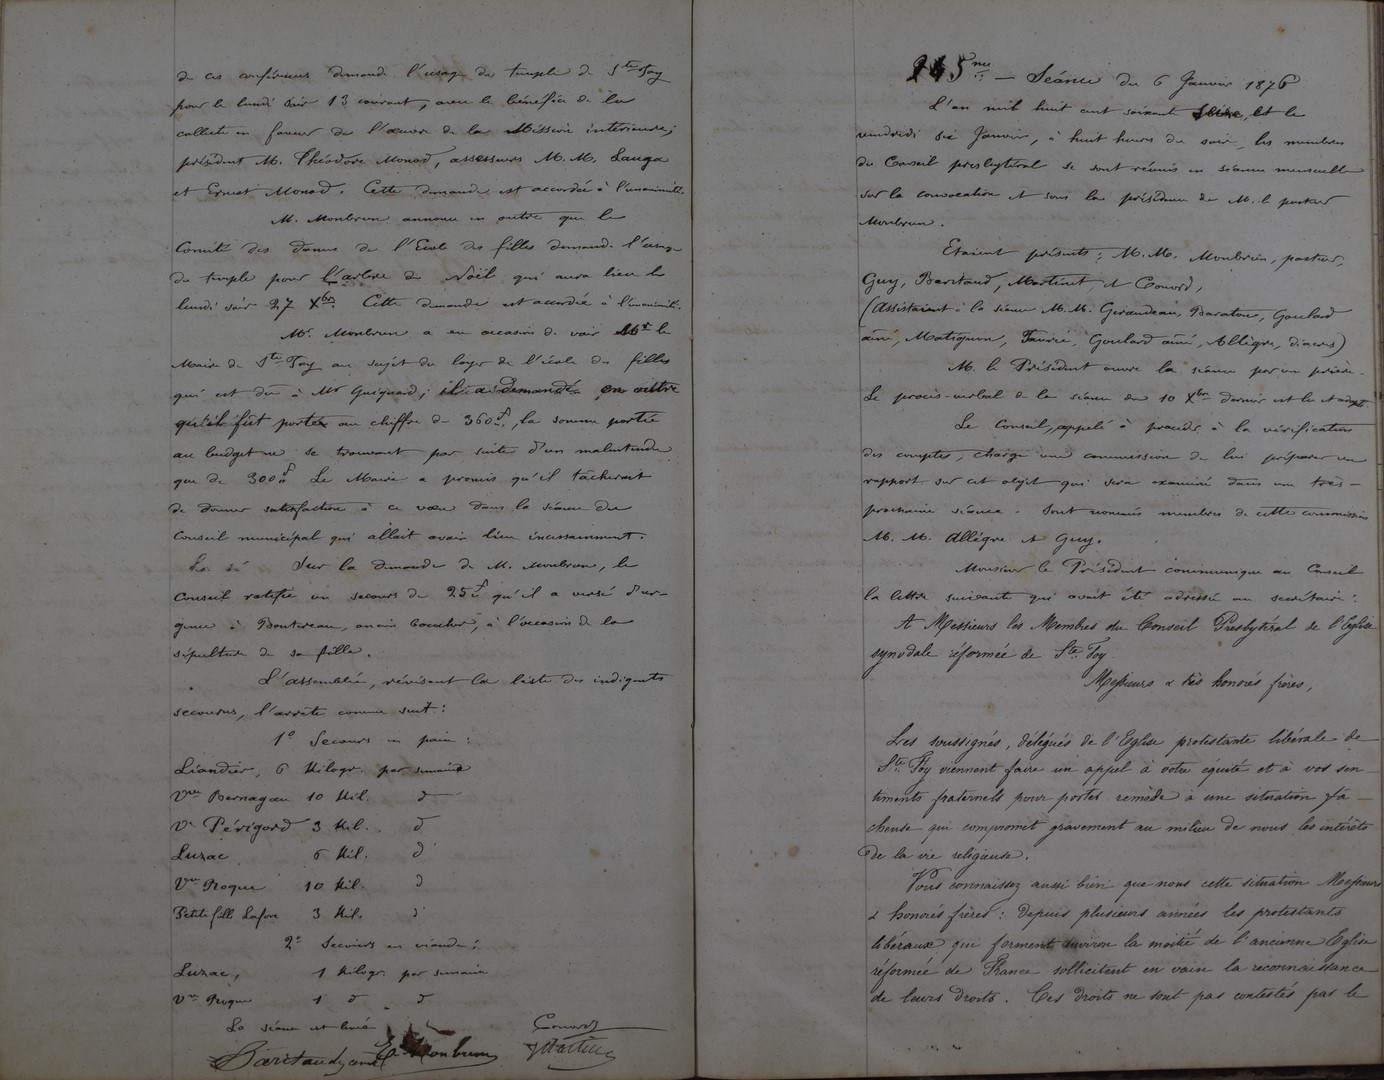 de ces conférences demande l'usage du temple de Ste Foy
pour le lundi soir 13 courant, avec le bénéfice de la
collecte en faveur de l'œuvre de la Mission intérieure;
président M. Théodore Monod, assesseurs M. M. Lauga
et Ernest Monod. Cette demande est accordée à l'unanimité.
M. Monbrun annonce en outre que le
Comité des dames de l'Ecole des filles demande l'usage
du temple pour l'arbre de Noël qui aura lieu le
lundi soir 27 Xbre. Cette demande est accordée à l'unanimité.
Mr. Monbrun a eu occasion de voir Mr le
Maire de Ste Foy au sujet du loyer de l'école des filles
qui est dû à Mr Guignard; il a demandé en outre
qu'il fût porté au chiffre de 360 f., la somme portée
au budget ne se trouvant par suite d'un malentendu
que de 300 f. Le Maire a promis qu'il tâcherait
de donner satisfaction à ce vœu dans la séance du
Conseil municipal qui allait avoir lieu incessamment.
Sur la demande de M. Monbrun, le
Conseil ratifie un secours de 25 f. qu'il a versé d'ur-
gence à Bontereau, ancien , à l'occasion de la
sépulture de sa fille.
L'assemblée, révisant la liste des indigents
secourus, l'arrête comme suit:
1° Secours en pain:
Liandier, 6 Kilogr. par semaine
Vve Bernagau 10 Kil. d°
Ve Périgord 3 Kil. d°
Luzac 6 Kil. d°
Vve Roque 10 Kil. d°
Petite fille Lafon 3 Kil. d°
2° Secours en viande:
Luzac, 1 Kilogr. par semaine
Vve Roque 1 d° d°
La séance est levée
Conord
Baritaud, ainé E. Monbrun J Martinet
245me — Séance du 6 Janvier 1876
L'an mil huit cent soixante seize, et le
vendredi six Janvier, à huit heures du soir, les membres
du Conseil presbytéral se sont réunis en séance mensuelle
sur la convocation et sous la présidence de M. le pasteur
Monbrun.
Etaient présents: M. M. Monbrun, pasteur,
Guy, Baritaud, Martinet et Conord,
(Assistaient à la séance M. M. Giraudeau, Baraton, Goulard
ainé, Matignon, Faurie, Goulard ainé, Allègre, diacres)
M. le Président ouvre la séance par un prière.
Le procès-verbal de la séance du 10 Xbre dernier est lu et adopté.
Le Conseil, appelé à procéder à la vérification
des comptes, charge une commission de lui préparer un
rapport sur cet objet qui sera examiné dans une très-
prochaine séance. Sont nommés membres de cette commission
M. M. Allègre et Guy.
Monsieur le Président communique au Conseil
la lettre suivante qui avait été adressée au secrétaire:
A Messieurs les Membres du Conseil Presbytéral de l'Eglise
synodale réformée de Ste. Foy.
Messieurs & très honorés frères,
Les soussignés, délégués de l'Eglise protestante libérale de
Ste. Foy viennent faire un appel à votre équité et à vos sen-
timents fraternels pour porter remède à une situation fâ-
cheuse qui compromet gravement au milieu de nous les intérêts
de la vie religieuse.
Vous connaissez aussi bien que nous cette situation Messieurs
& honorés frères: depuis plusieurs années les protestants
libéraux qui forment environ la moitié de l'ancienne Eglise
réformée de France sollicitent en vain la reconnaissance
de leurs droits. Ces droits ne sont pas contestés par le